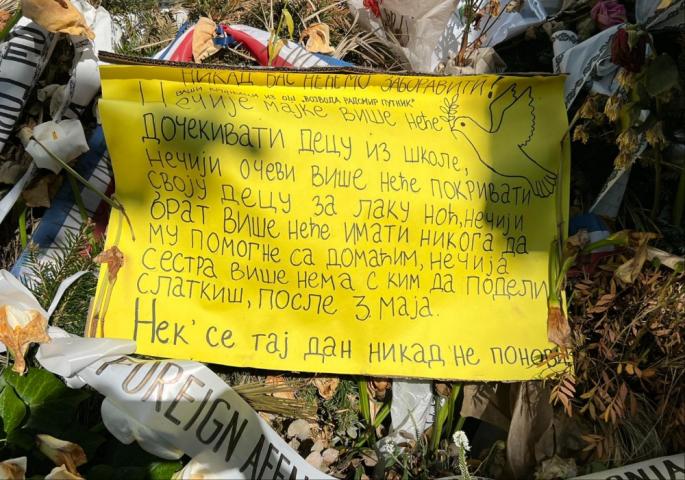 НИКАД ВАС НЕЋЕМО ЗАБОРАВИТИ!
ВАШИ ИЗ ОШ „ВОЈВОДА РАДОМИР ПУТНИК"
Нечије мајке више неће
дочекивати децу из школе,
нечији очеви више неће покривати
своју децу за лаку ноћ, нечији
брат више неће имати никога да
му помогне са домаћим, нечија
сестра више нема с ким да подели
слаткиш, после 3. маја.
Нек' се тај дан никад не понови
FOREIGN AFFAI